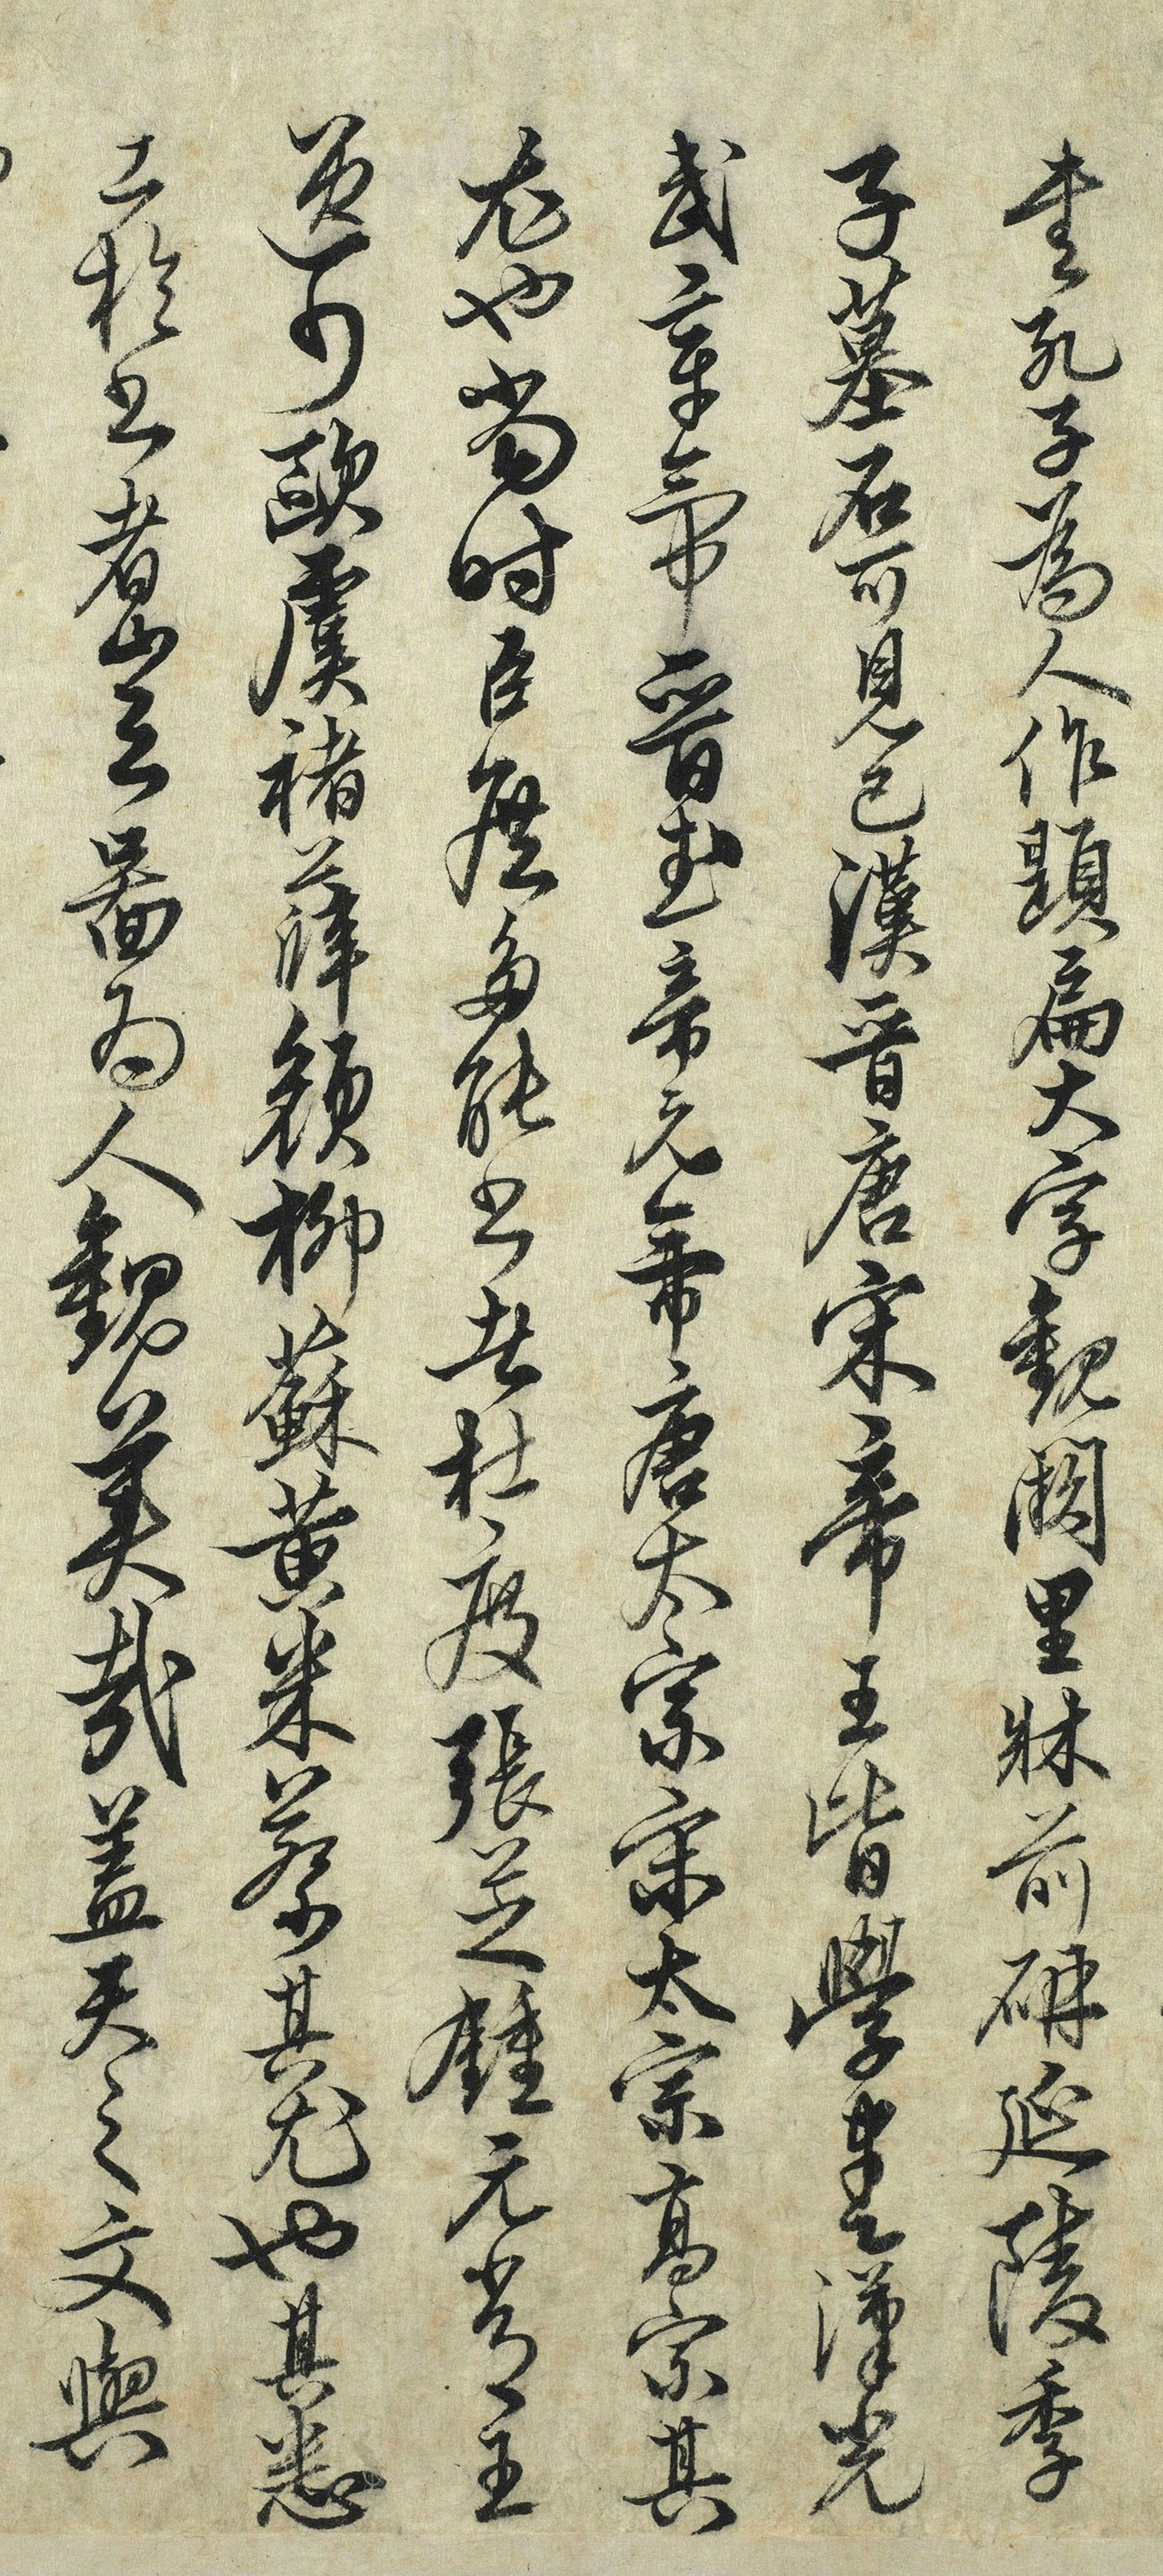 書孔子為人作題扁大字觀闕里牀前硯延陵季
子墓石可見已漢晉唐宋帝王皆學書漢光
武章帝晉武帝元帝唐太宗宋太宗高宗其
尤也當時臣庶多能書者杜度張芝鍾元常王
逸少歐虞褚薛顏柳蘇黃米蔡其尤也其悉
工於書者豈器為人觀美哉蓋天之文與